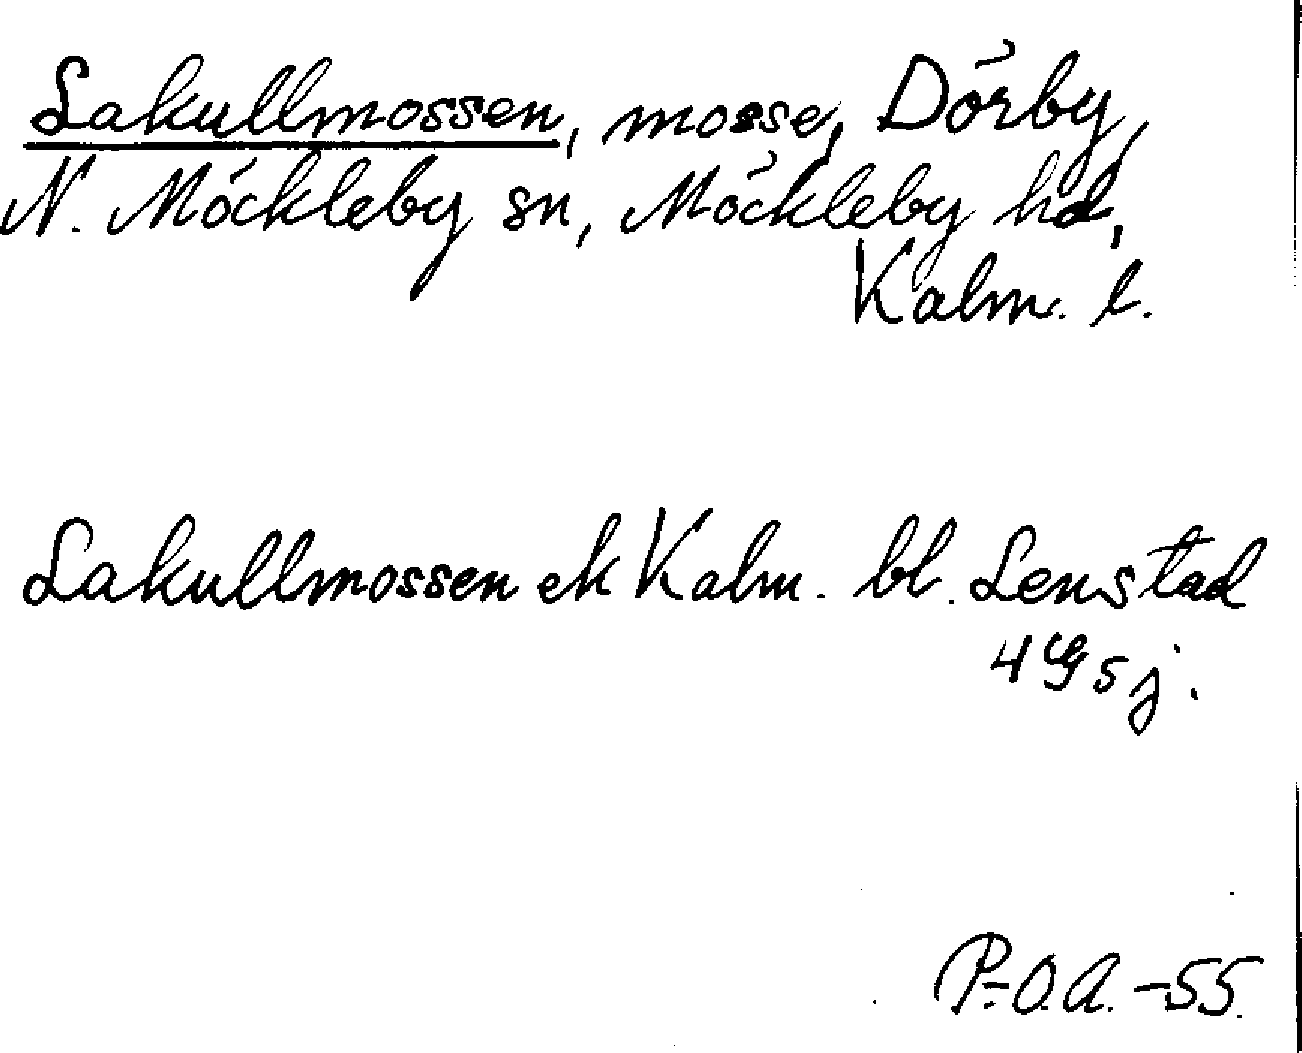 Lakullmossen, mosse, Dörby,
N. Möckleby sn, Möckleby hd,
Kalm. l.
Lakullmossen ek Kalm. bl. Lenstad
4G5j.
P.-O.A. -55.